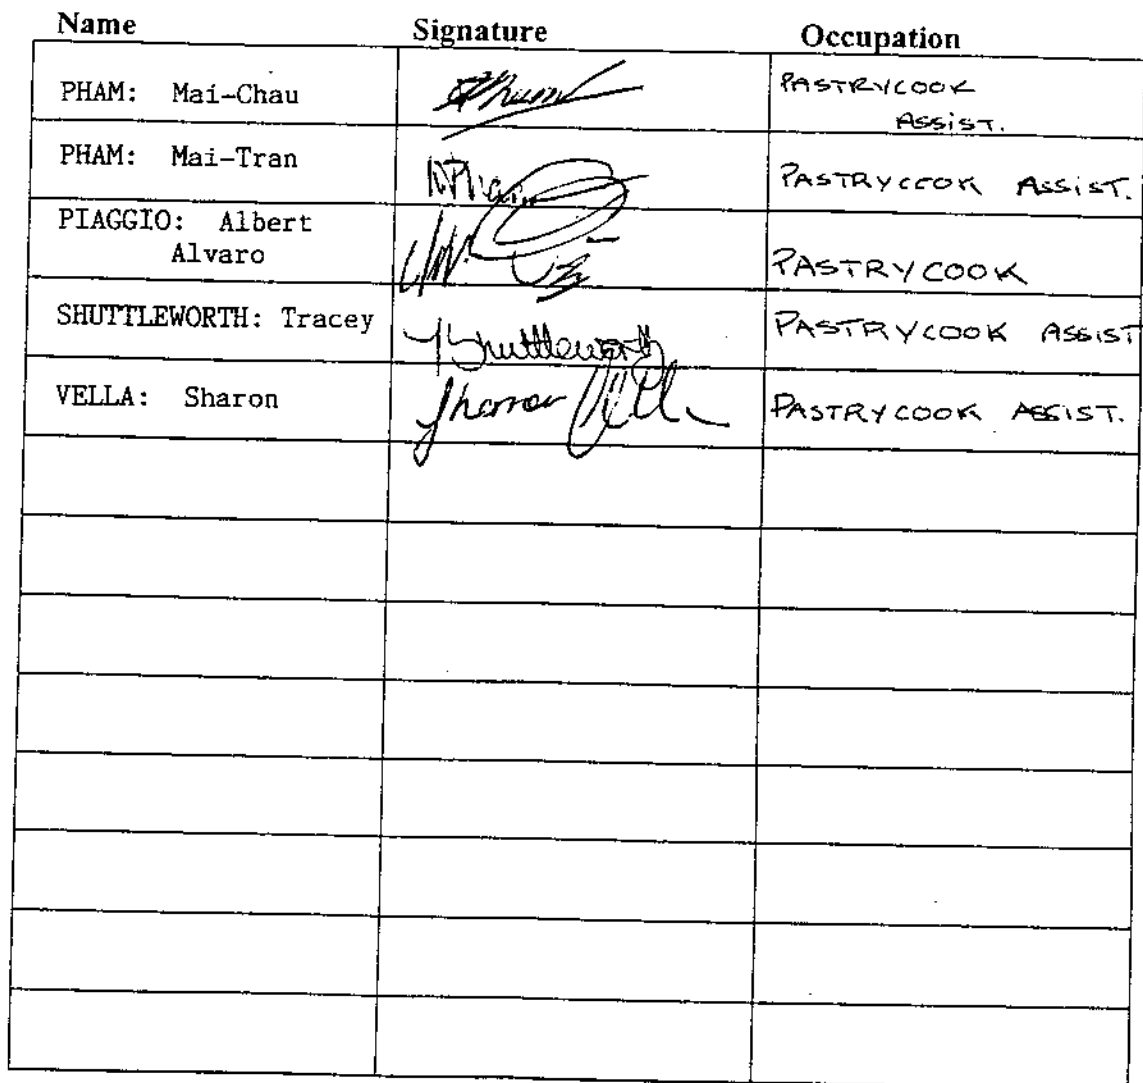 Name Signature Occupation
PHAM: Mai-Chau PASTRYCOOK
ASSIST.
PHAM: Mai-Tran PASTRYCOOK ASSIST.
PIAGGIO: Albert
Alvaro PASTRYCOOK
SHUTTLEWORTH: Tracey TShuttleworth PASTRYCOOK ASSIST
VELLA: Sharon PASTRYCOOK ASSIST.